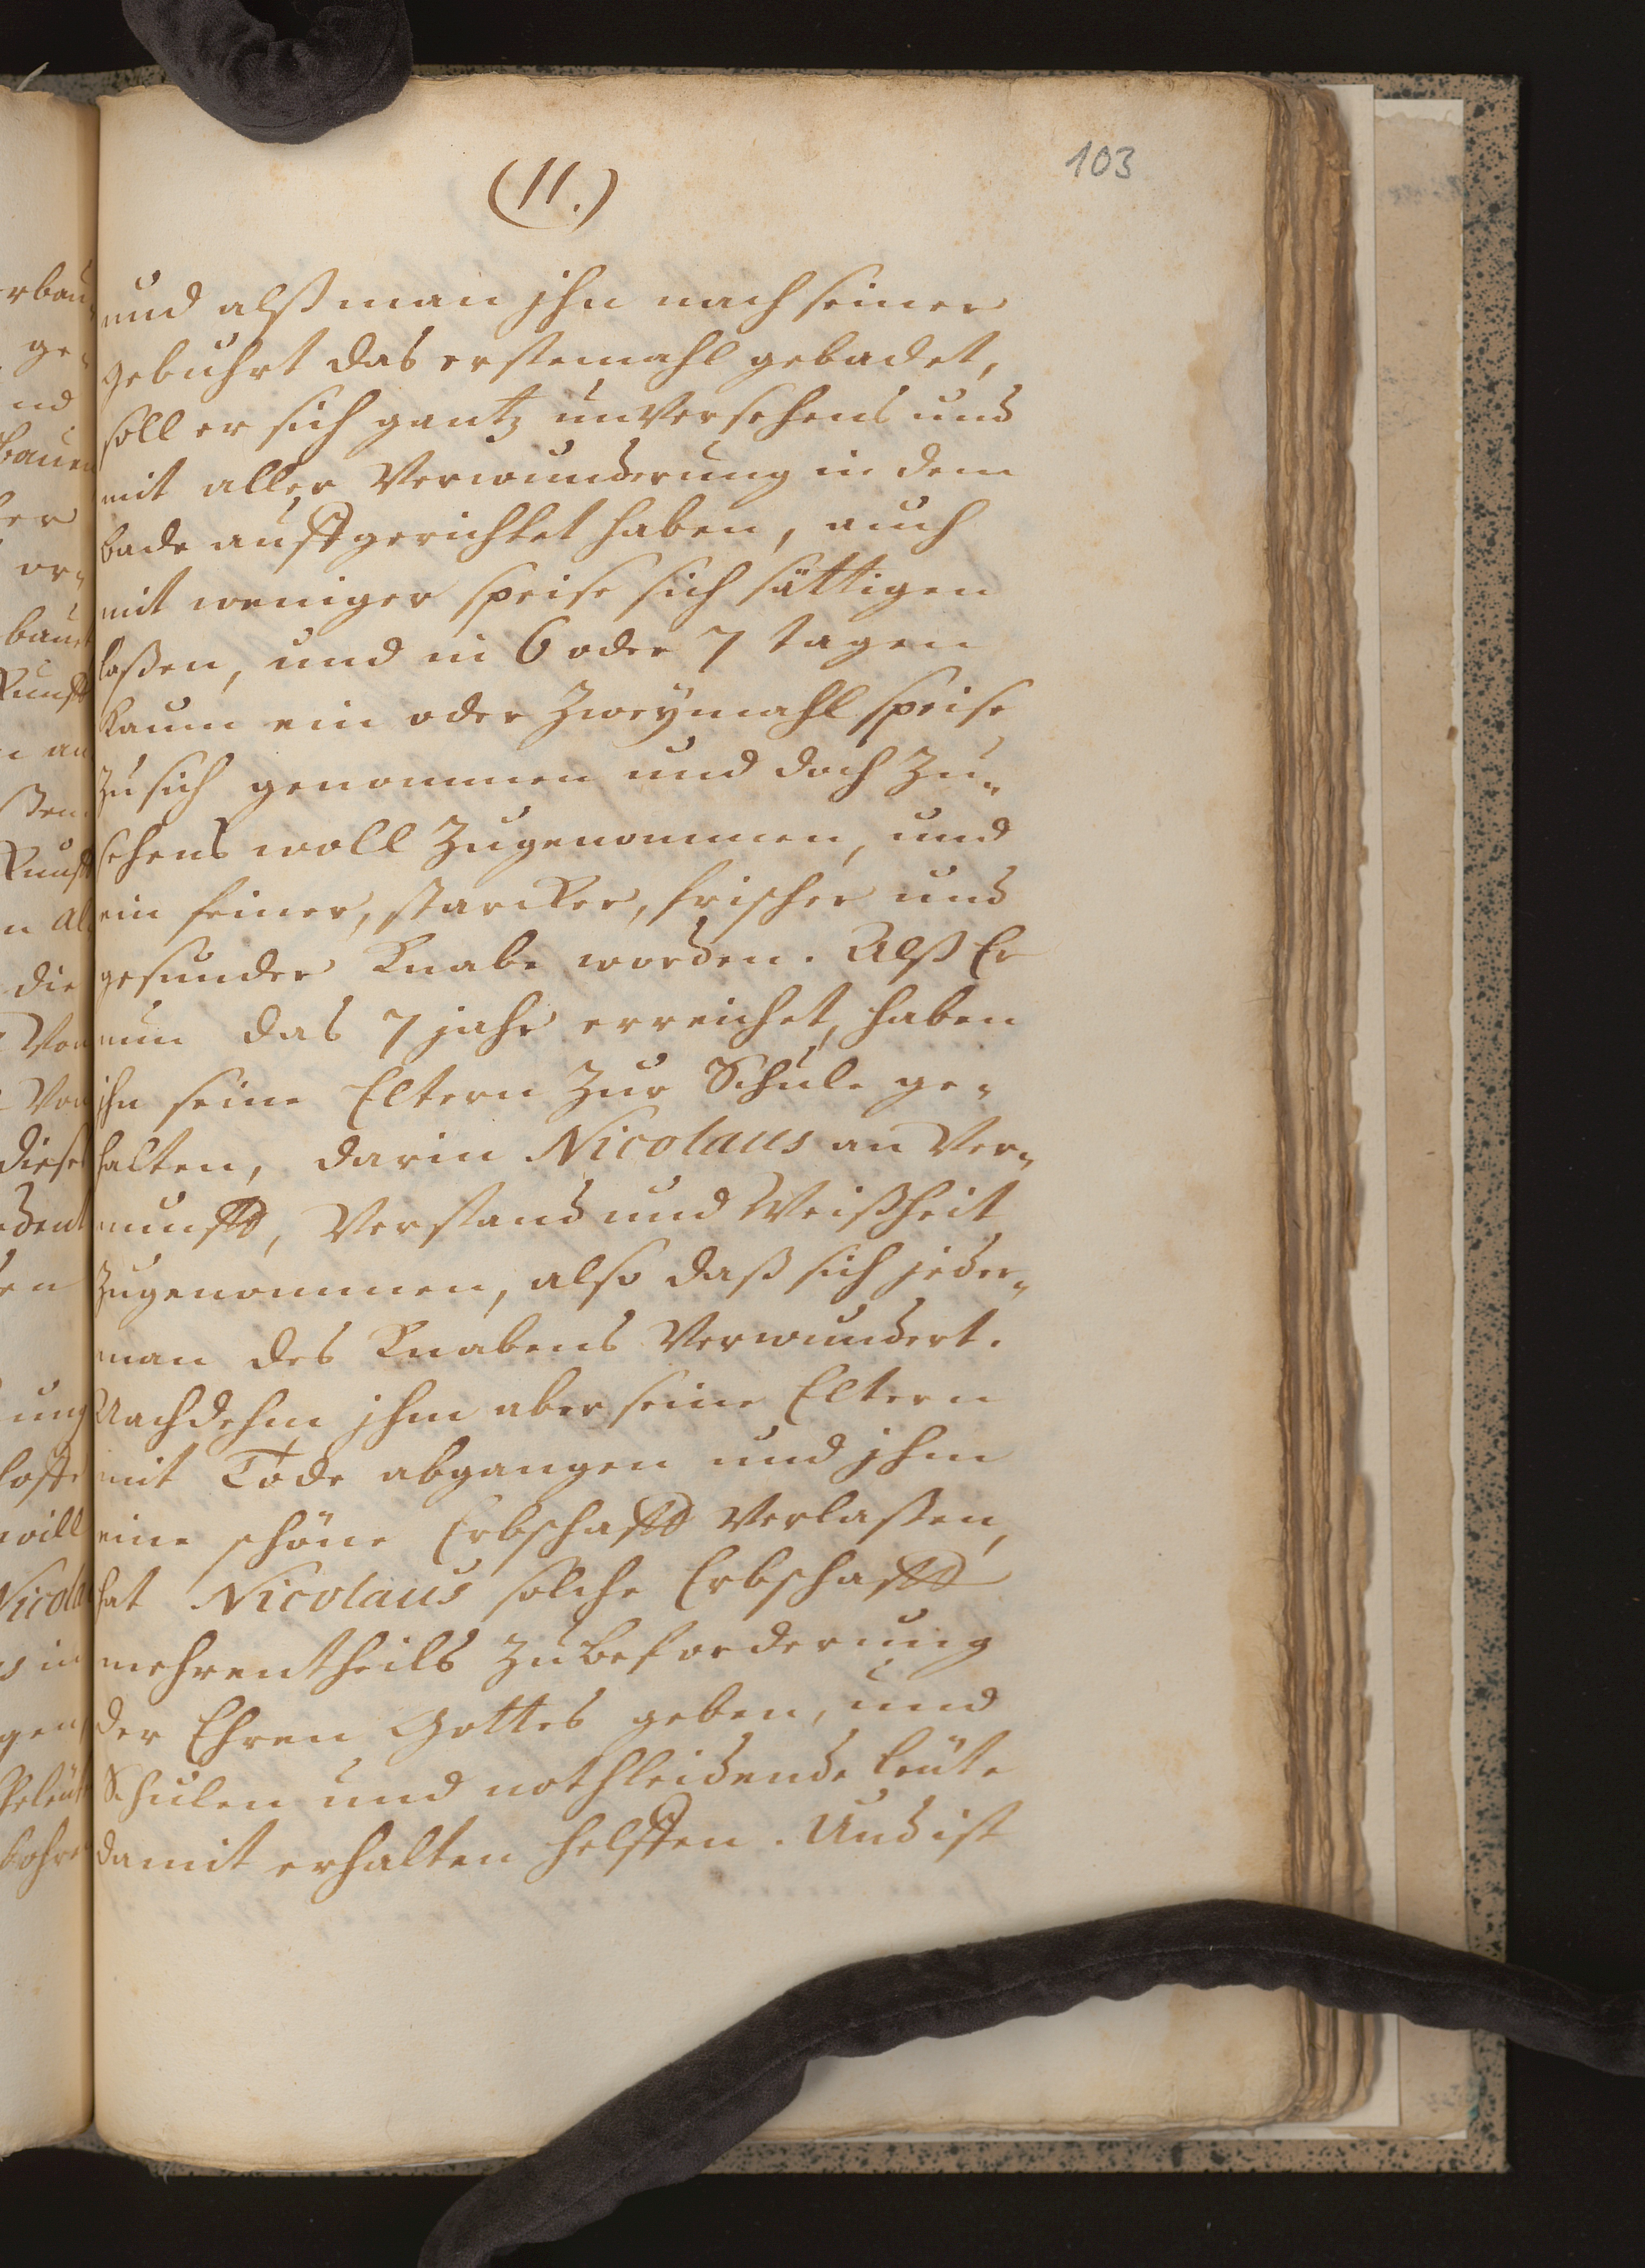 (11.)
103
und alß man jhn nach seiner
gebuhrt das erstemahl gebadet,
soll er sich gantz unversehens und
mit aller Verwunderung in dem
bade auffgerichtet haben, auch
mit weniger speise sich sättigen
laßen, und in 6 oder 7 tagen
kaum ein oder Zweymahl speise
Zu sich genommen und doch Zu-
sehens woll Zugenommen, und
ein feiner, starcker, frischer und
gesunder Knabe worden. Alß Er
nun das 7 jahr erreichet, haben
ihn seine Eltern Zur Schule ge-
halten, darin Nicolaus an Ver-
nunfft, Verstand und Weißheit
Zugenommen, also daß sich jeder-
man des Knabens Verwundert.
Nachdehm jhm aber seine Eltern
mit Tode abgangen und jhm
eine schöne Erbschafft Verlaßen,
hat Nicolaus solche Erbschafft
mehrentheils Zu beforderung
der Ehren Gottes geben, und
Schulen und nothleidende leute
damit erhalten helffen. Und ist